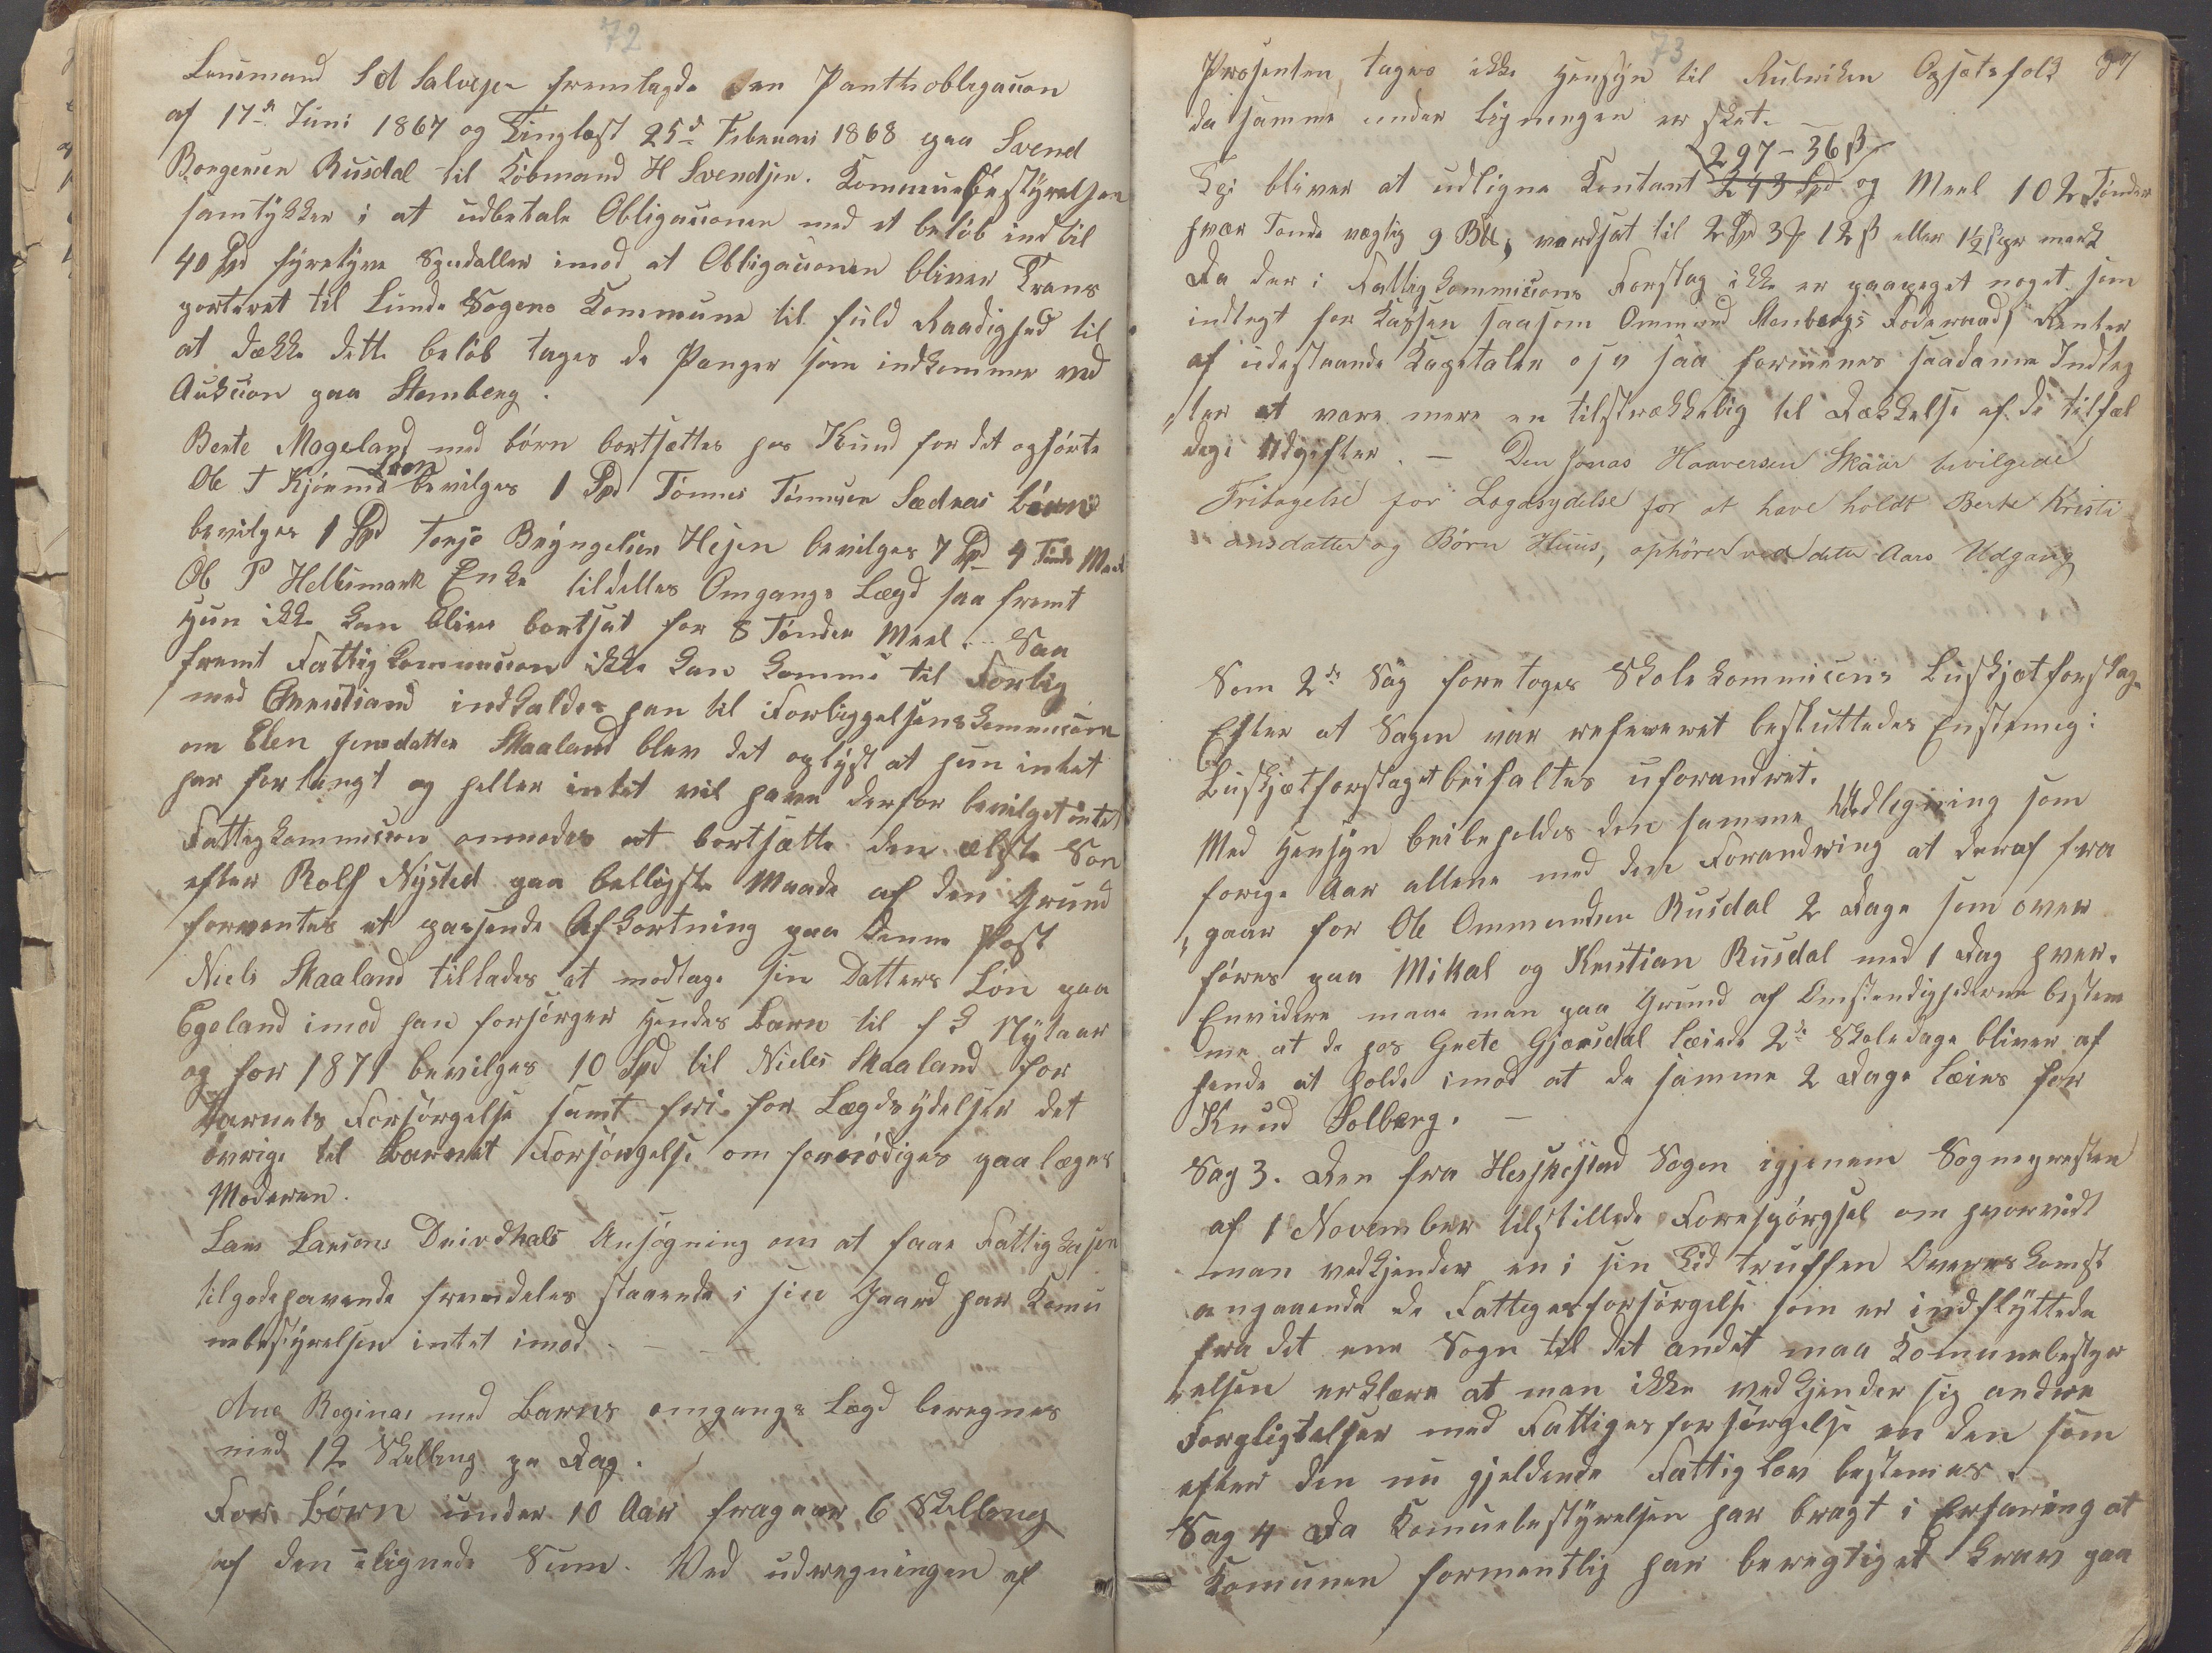 72
Lensmand S d Salvesen fremlagde den Panthobligasion
af 17de Juni 1867 og Tinglæst 25de Februar 1868 paa Svend
Borgersen Rusdal til Kjøbmand H Svendsen. Kommunebestyrelsen
samtykker i at udbetale Obligasionen med et beløb indtil
40 Spd fyretyve Spedaller imod at Obligasionen bliver Trans
porteret til Lunde Sogens Kommune til fuld Raadighed til
at dække dette beløb tages de Penger som indkommer ved
Auksion paa Stemberg.
Berte Mogeland med børn bortsættes hos Knud for det opførte
Ole T Kjørmo bevilges 1 Spd Tønnes Tønnesen Sædras børn
bevilges 1 Spd Terje Bryngelsen Hejen bevilges 7 Spd 4 Tønde Meel
Ole P Hellesmark Enke tildelles Omgangs Lægd saa fremt
hun ikke kan blive bortsat for 8 Tønder Meel. Saa
fremt Fattigkommission ikke kan komme til Forlig
med Christiand indkaldes han til Forliggelsenskommissionen
om Elen Jensdatter Skaaland blev det oplyst at hun intet
har forlangt og heller intet vil have derfor bevilget intet
Fattigkommission anmodes at bortsætte den ælste Søn
efter Rolf Nysted paa belligste Maade af den Grund
forventes et passende Afkortning paa denne Post
Niels Skaaland tillades at modtage sin Datters Løn paa
Egeland imod han forsørger hendes Barn til f k Nytaar
og for 1871 bevilges 10 Spd til Niels Skaaland for
Barnets Forsørgelse samt fri for Lægdsydelser det
øvrige til Barnet Forsørgelse om fornødiges paalægges
Moderen.
Lars Larsens Drivdhals Ansøgning om at faae Fattigkasen
tilgodehavende fremdeles staaende i sin Gaard har Komu
nebestyrelsen intet imod. —
Ane Reginas med Barns omgangs Lægd beregnes
med 12 Skelling pe Dag.
For Børn under 10 Aar fragaar 6 Skelling
af den lignede Sum. Ved udregningen af
73
Prosenten tages ikke Hensyn til Rubriken Opsætsfolk
da samme under ligningen er sket. —
297 - 36 ß
Til bliver at udligne Kontant 243 Spd og Meel 102 Tønder
hver Tønde vægtig 9 B℔, værdsat til 2 Spd 3 ß 12 ß eller
Da der i Fattigkommisions Forslag ikke er paapeget noget som
indtegt for Kassen saasom Ommund Stenbergs Foderraads Renter
af udestaaende Kapetaler o s v saa formenes saadanne Indteg
ter at være mere en tilstrækkelig til Dækkelse af de tilfæl
dege Udgifter. — Den Jonas Haaversen Skåår bevilgede
Fritagelse for Lægdsydelse for at have holdt Berte Kristi
ansdatter og Børn Huus, ophører ved dette Aars Udgang
Som 2de Sag foretoges Skolekommisions Buskjetforslag
Efter at Sagen var refereret besluttedes Enstemig:
Buskjetforslaget beifaltes uforandret.
Med Hensyn beibeholdes den samme Udlegning som
forige Aar allene med den Forandring at deraf fra
gaar for Ole Ommundsen Rusdal 2 Dage som over
føres paa Mikal og Kristian Rusdal med 1 Dag hver.
Envidere maae man paa Grund af Omstendighederne bestem
me at de hos Grete Gjersdal læiede 2de Skoledage bliver af
hende at holde imod at de samme 2 Dage læies for
Knud Solberg. —
Sag 3. Den fra Heskestad Sogen igjenem Sognepresten
af 1 November tilstillede Forespørgsel om hvorvidt
man vedkjender en i sin Tid truffen Overenskomst
angaaende de Fattigesforsørgelse som er indflyttede
fra det ene Sogn til det andet maa Komunebestyr
relsen erklære at man ikke vedkjender sig andre
Forpligtelser med Fattigesforsørgelse en den som
efter den nu gjeldende Fattiglov bestemes.
Sag 4 Da Komunebestyrelsen har bragt i Erfaring at
Komunen formentlig har beregtiget krav paa